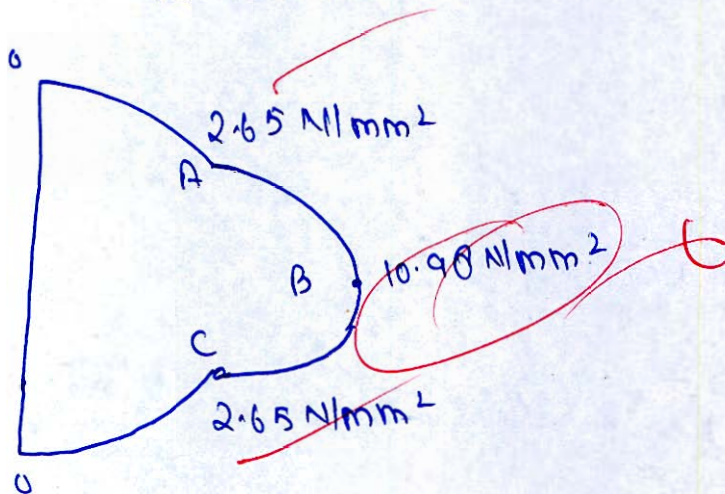 0
2.65 N/mm²
A
B 10.98 N/mm²
C
2.65 N/mm²
0
6